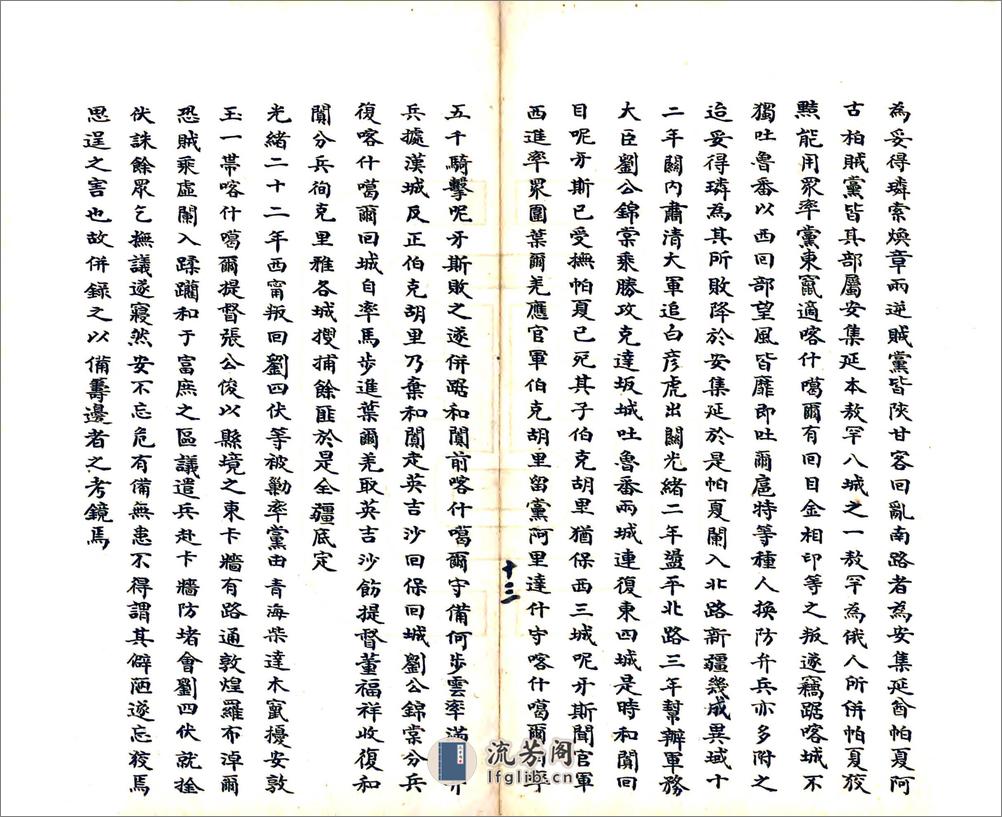 為妥得璘索煥章兩逆賊黨皆陝甘客回亂南路者為安集延酋帕夏阿
古柏賊黨皆其部屬安集延本敖罕八城之一敖罕為俄人所併帕夏狡
黠能用眾率黨東竄適喀什噶爾有回目金相印等之叛遂竊踞喀城不
獨吐魯番以西回部望風皆靡即吐爾扈特等種人換防弁兵亦多附之
迨妥得璘為其所敗降於安集延於是帕夏闌入北路新疆幾成異域十
二年關內肅清大軍追白彥虎出關光緒二年盪平北路三年幫辦軍務
大臣劉公錦棠乘勝攻克達坂城吐魯番兩城連復東四城是時和闐回
目呢牙斯已受撫帕夏已死其子伯克胡里猶保西三城呢牙斯聞官軍
西進率眾圍葉爾羌應官軍伯克胡里留黨阿里達什守喀什噶爾
十三
五千騎擊呢牙斯敗之遂併踞和闐前喀什噶爾守備何步雲率滿
兵據漢城反正伯克胡里乃棄和闐走英吉沙回保回城劉公錦棠分兵
復喀什噶爾回城自率馬步進葉爾羌取英吉沙飭提督董福祥收復和
闐分兵徇克里雅各城搜捕餘匪於是全疆底定
光緒二十二年西甯叛回劉四伏等被勦率黨由青海柴達木竄擾安敦
玉一帶喀什噶爾提督張公俊以縣境之東卡牆有路通敦煌羅布淖爾
恐賊乘虛闌入蹂躪和于富庶之區議遣兵赴卡牆防堵會劉四伏就擒
伏誅餘眾乞撫議遂寢然安不忘危有備無患不得謂其僻陋遂忘狡焉
思逞之害也故併錄之以備籌邊者之考鏡焉
流芳阁
lfglib.cn